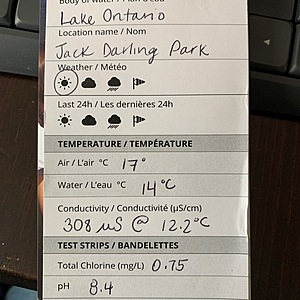 Body of water / Plan d'eau
Lake Ontario
Location name / Nom
Jack Darling Park
Weather / Météo
Last 24h / Les dernières 24h
TEMPERATURE / TEMPÉRATURE
Air / L'air °C 17°
Water / L'eau °C 14°C
Conductivity / Conductivité (µS/cm)
308 µS @ 12.2°C
TEST STRIPS / BANDELETTES
Total Chlorine (mg/L) 0.75
pH 8.4